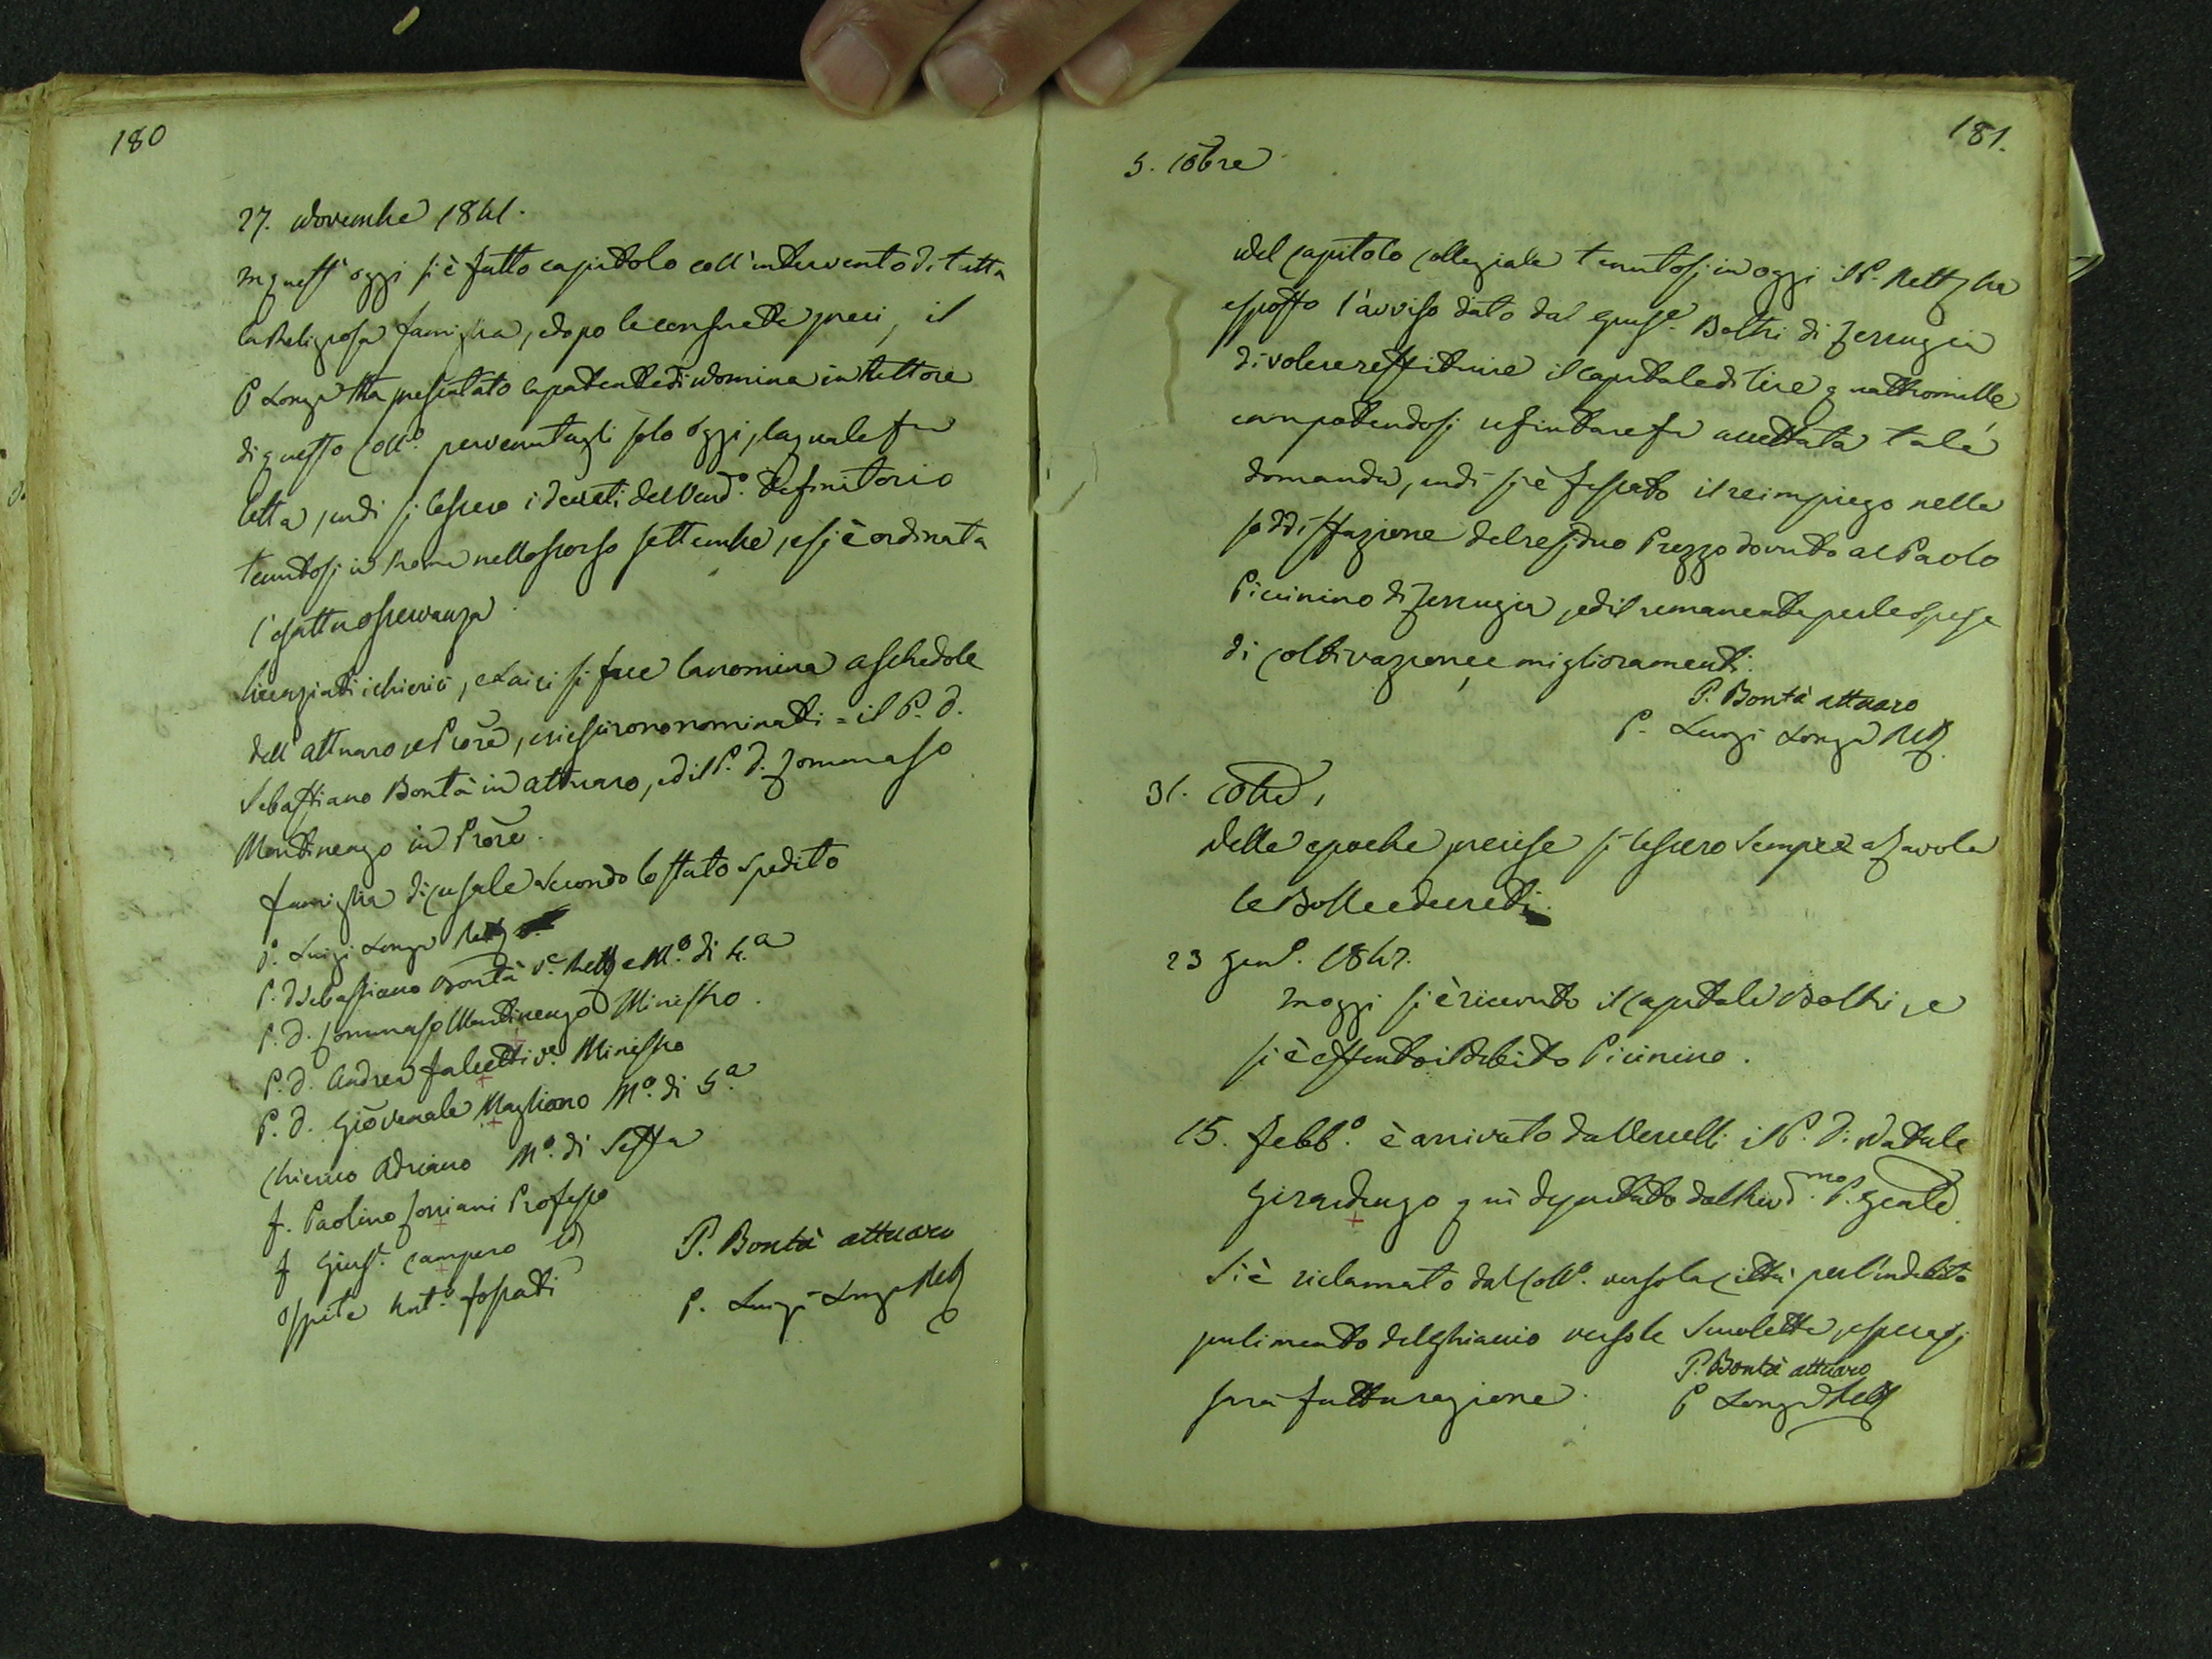 180
27. Novembre 1841.
In quest' oggi si è fatto capitolo coll'intervento di tutta
la Religiosa famiglia, e dopo le consuete preci, il
P Longa ha presentato la patente di nomina in Rettore
di questo Coll.º pervenutagli solo oggi, la quale fu
letta, indi si lessero i decreti del Vend.º Definitorio
tenutosi in Roma nello scorso settembre, e si è ordinata
l'esatta osservanza.
Licenziati i chierici, e Laici si fece la nomina a schedole
dell' attuaro, e Prore, e riescirono nominati = il P. D.
Sebastiano Bontà in attuaro, ed il P. D. Tommaso
Mantinengo in Prore.
famiglia di Casale secondo lo stato spedito
P. Luigi Longa Rett
P. D Sebastiano Bontà V.e Rett e M.º di 4.a
P. D. Tommaso Mantinengo Ministro.
P. D. Andrea Faletti V.e Ministro
P. D. Giovenale Magliano M.º di 5.a
Chierico Adriano M.º di Sesta
f. Paolino Torriani Professo
f Gius.e Campero
Ospite Ant.º fossati
P. Bontà attuaro
P. Luigi Longa Rett
181.
5. 10bre
Nel capitolo collegiale tenutosi in oggi il P. Rett ha
esposto l'avviso dato dal Giuse. Boltri di Terrugia
di volere restituire il capitale di lire quattromille
non potendosi rifiutare fu accettata tale
domanda, indi si è fissato il reimpiego nella
soddisfazione del residuo Prezzo dovuto al Paolo
Piccinino di Terrugia, ed il rimanente per le spese
di coltivazione, e miglioramenti.
P. Bontà attuaro
P. Luigi Longa Rett.
31. 10bre,
Nelle epoche precise si lessero sempre a Tavola
le Bolle e decreti.
23 Gen.º 1842.
In oggi si è ricevuto il capitale Boltri, e
si è estinto il debito Picinino.
15. Febb.º è arrivato da Vercelli il P. D. Natale
Girardengo qui deputato dal Rev.d mo P. Genle.
Si è riclamato dal Coll.º verso la città per l'indebito
pulimento del ghiaccio verso le Scuolette, e sperasi
sarà fatta ragione.
P. Bontà attuaro
P Longa Rett